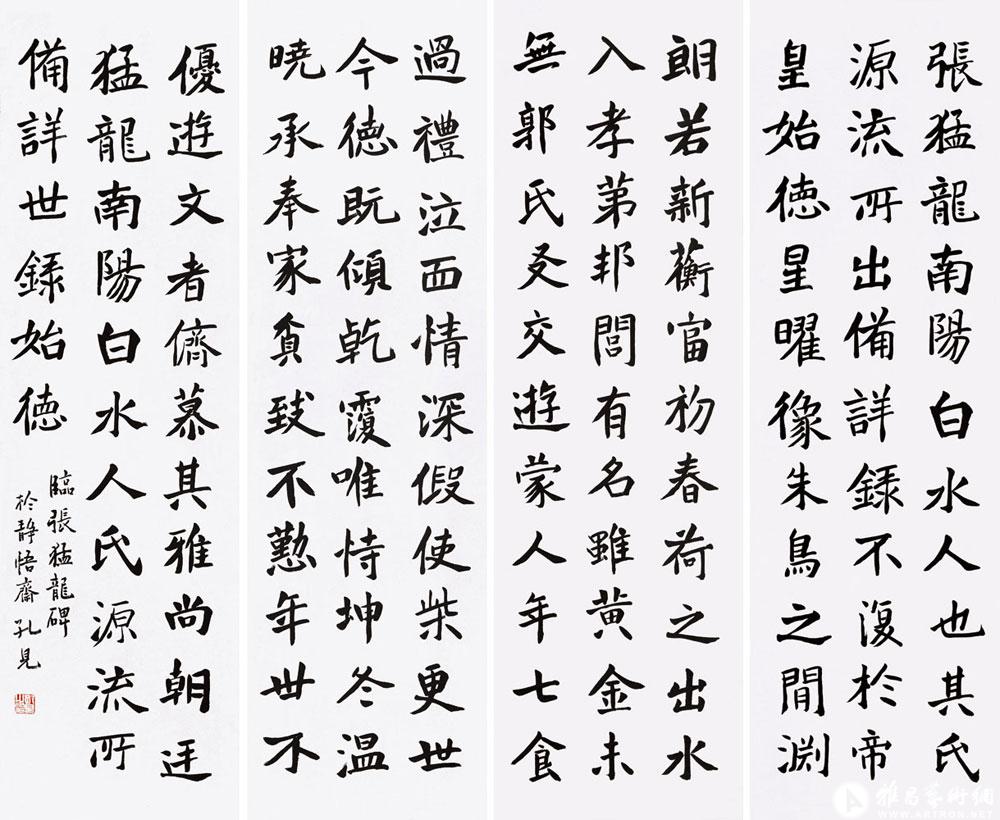 張猛龍南陽白水人也其氏
源流所出備詳錄不復於帝
皇始德星曜像朱鳥之間渊
朗若新蘅富初春荷之出水
入孝第邦閭有名雖黃金未
無郭氏友交遊蒙人年七食
過禮泣面情深假使柴更世
今德既傾乾覆唯恃坤冬温
曉承奉家貪致不懃年世不
優遊文者儕慕其雅尚朝廷
猛龍南陽白水人氏源流所
備詳世錄始德
臨張猛龍碑
於靜悟齋孔見
雅昌艺術網
WWW.ARTRON.NET